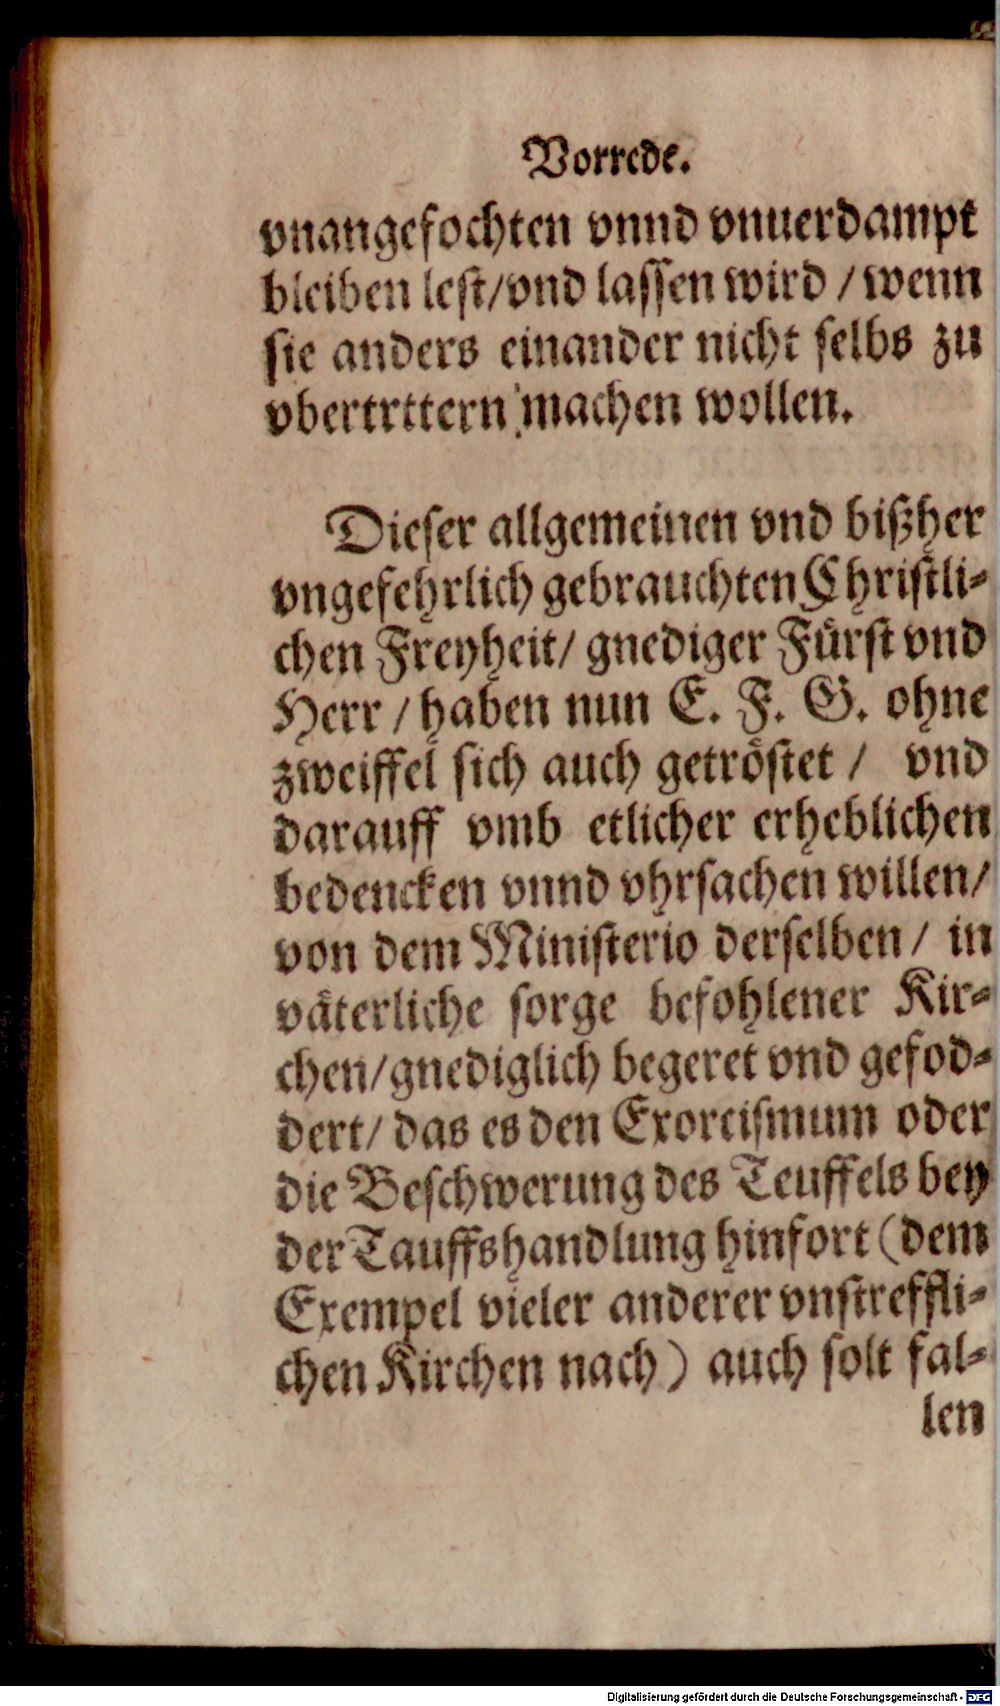 Vorrede.
vnangefochten vnnd vnuerdampt
bleiben lest/vnd lassen wird / wenn
sie anders einander nicht selbs zu
vbertrttern machen wollen.
Dieser allgemeinen vnd bißher
vngefehrlich gebrauchten Christli-
chen Freyheit/ gnediger Fürst vnd
Herr / haben nun E. F. G. ohne
zweiffel sich auch getröstet / vnd
darauff vmb etlicher erheblichen
bedencken vnnd vhrsachen willen/
von dem Ministerio derselben / in
väterliche sorge befohlener Kir-
chen/gnediglich begeret vnd gefod-
dert/ das es den Exorcismum oder
die Beschwerung des Teuffels bey
der Tauffshandlung hinfort (dem
Exempel vieler anderer vnstreffli-
chen Kirchen nach) auch solt fal-
len
Digitalisierung gefördert durch die Deutsche Forschungsgemeinschaft - DFG